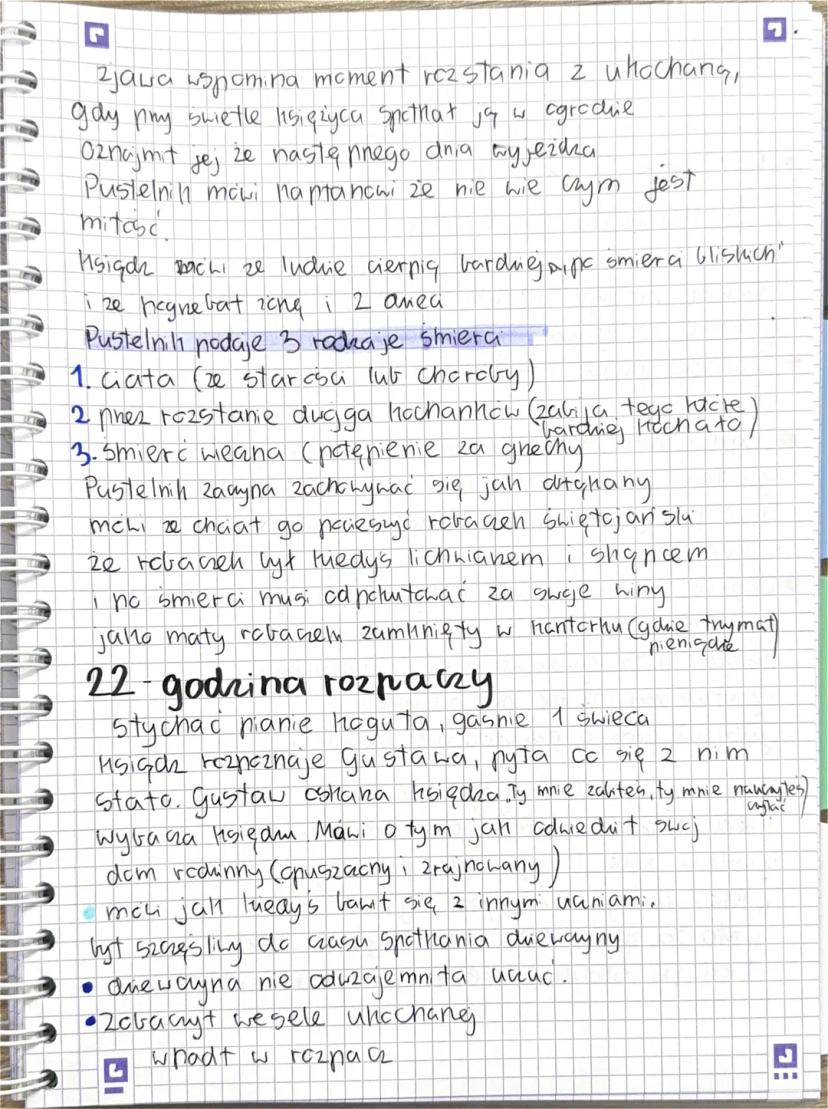 zjawa wspomina moment rozstania z ukochaną,
gdy przy świetle księżyca spotkał ją w ogrodzie
Oznajmił jej że następnego dnia wyjeżdża
Pustelnik mówi kapłanowi że nie wie czym jest
miłość.
Ksiądz mówi ze ludzie cierpią bardziej „po śmierci bliskich"
i ze pogrzebał żonę i 2 dzieci
Pustelnik podaje 3 rodzaje śmierci
1. Ciała (ze starości lub choroby)
2 przez rozstanie dwojga kochanków (zabija tego które
bardziej kochało)
3. Śmierć wieczna (potępienie za grzechy
Pustelnik zaczyna zachowywać się jak obłąkany
mówi ze chciał go pocieszyć robaczek świętojański
że robaczek był kiedyś lichwiarzem i skąpcem
i po śmierci musi odpokutować za swoje winy
jako mały robaczek zamknięty w kantorku (gdzie trzymał
pieniądze)
22 - godzina rozpaczy
Słychać pianie koguta, gaśnie 1 świeca
Ksiądz rozpoznaje Gustawa, pyta co się z nim
stało. Gustaw oskarża księdza „Ty mnie zabiłeś, ty mnie nauczyłeś
czytać)
wybacza księdzu. Mówi o tym jak odwiedził swój
dom rodzinny (opuszczony i zrujnowany)
• mówi jak kiedyś bawił się z innymi uczniami.
był szczęśliwy do czasu spotkania dziewczyny
• dziewczyna nie odwzajemniła uczuć.
• Zobaczył wesele ukochanej
wpadł w rozpacz